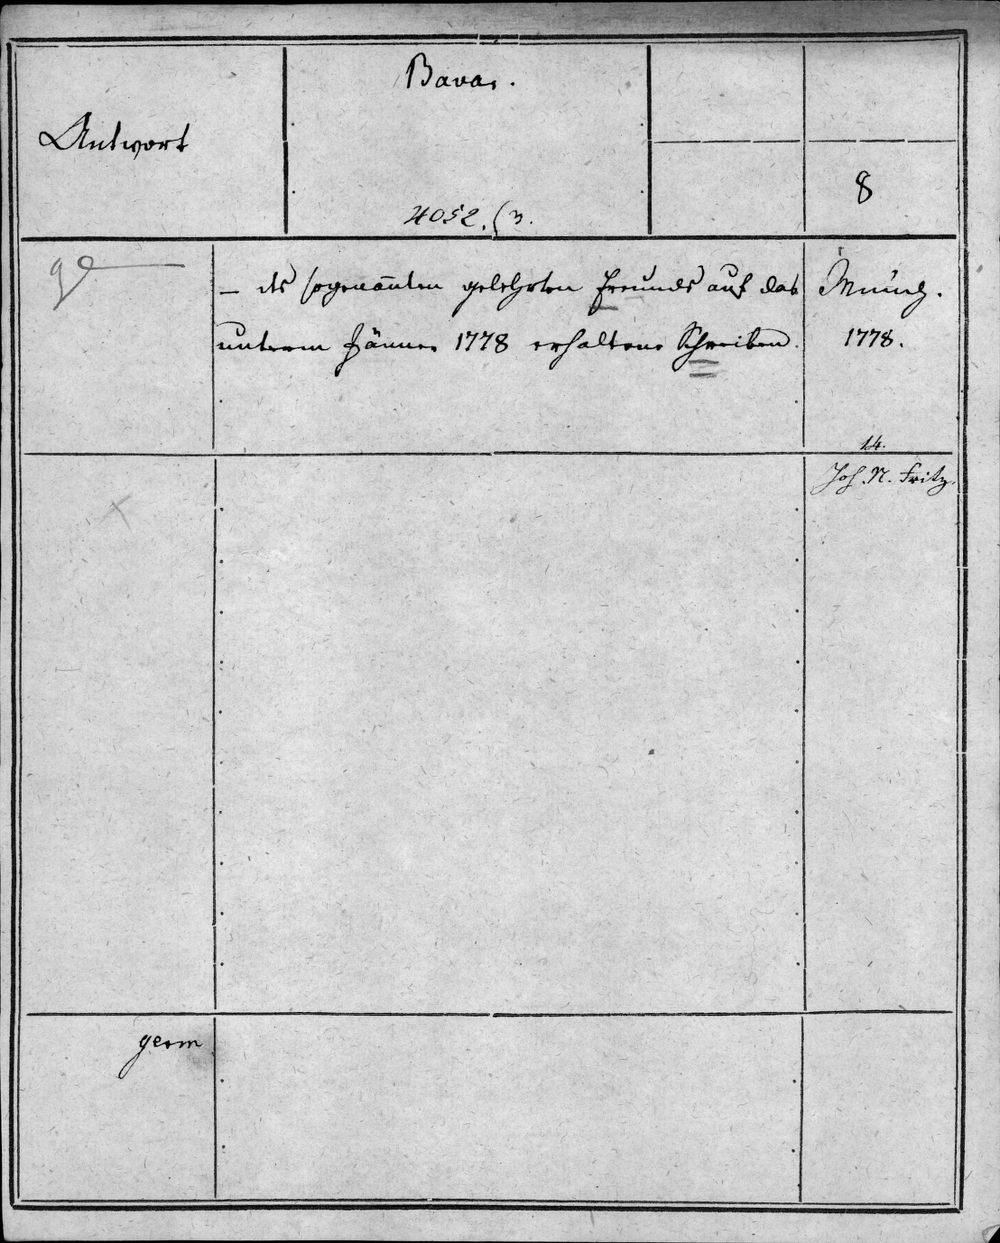 Antwort
Bavar.
4052. (3.
8
— des sogenan̄ten gelehrten Freunds auf das
unterm Jänner 1778 erhaltene Schreiben.
Münch.
1778.
14.
Joh. N. Fritz.
germ